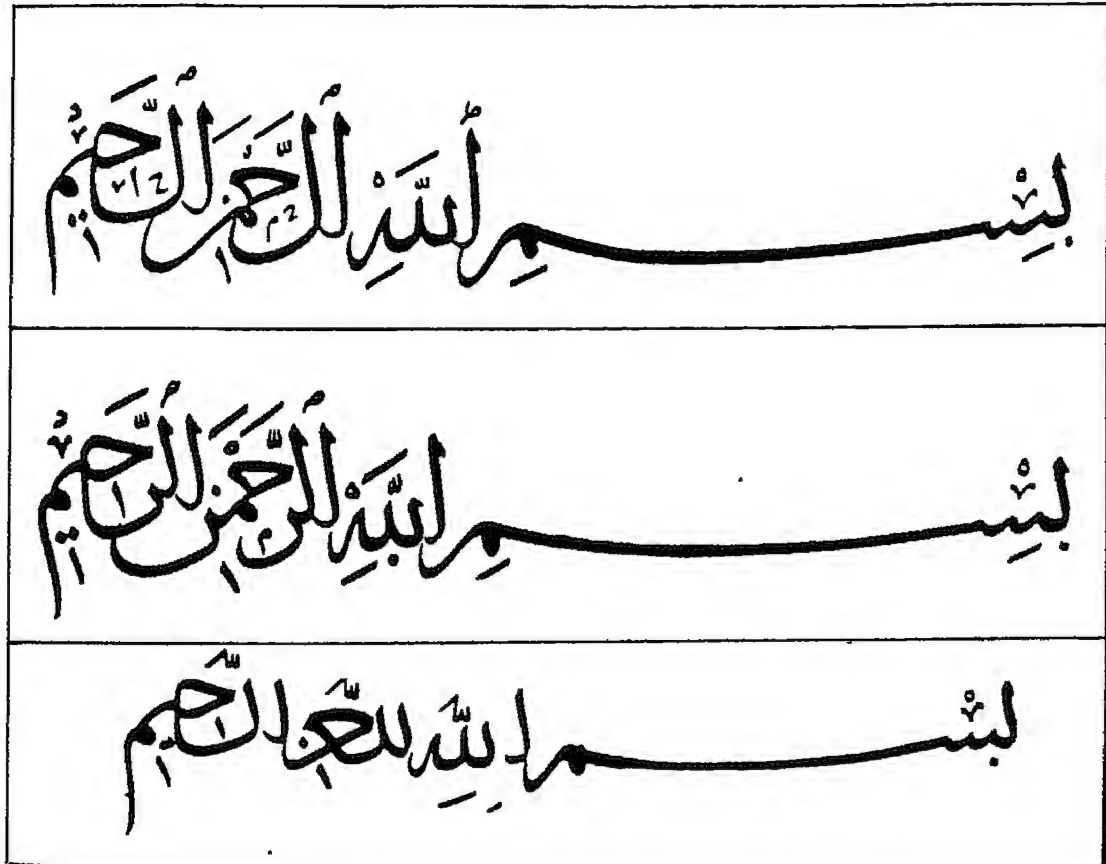 بِسْمِ ٱللَّهِ ٱلرَّحْمَٰنِ ٱلرَّحِيمِ
بِسْمِ اللَّهِ ٱلرَّحْمَٰنِ ٱلرَّحِيمِ
بسْم اللَّهِ الرَّحمن الرَّحيم